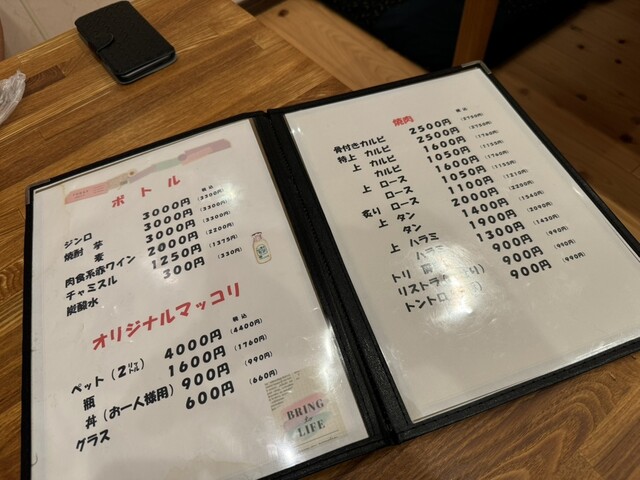 ボトル
税込
ジンロ 3000円 (3300円)
焼酎 芋 3000円 (3300円)
麦 3000円 (3300円)
肉食系赤ワイン 2000円 (2200円)
チャミスル 1250円 (1375円)
炭酸水 300円 (330円)
オリジナルマッコリ
税込
ペット (2リットル) 4000円 (4400円)
瓶 1600円 (1760円)
丼 (お一人様用) 900円 (990円)
グラス 600円 (660円)
BRING
to
LIFE
焼肉
税込
骨付きカルビ 2500円 (2750円)
特上 カルビ 2500円 (2750円)
上 カルビ 1600円 (1760円)
カルビ 1050円 (1155円)
上 ロース 1600円 (1760円)
ロース 1050円 (1155円)
炙り ロース 1100円 (1210円)
上 タン 2000円 (2200円)
タン 1400円 (1540円)
上 ハラミ 1900円 (2090円)
ハラミ 1300円 (1430円)
トリ 900円 (990円)
リストラ 900円 (990円)
トントロ 900円 (990円)